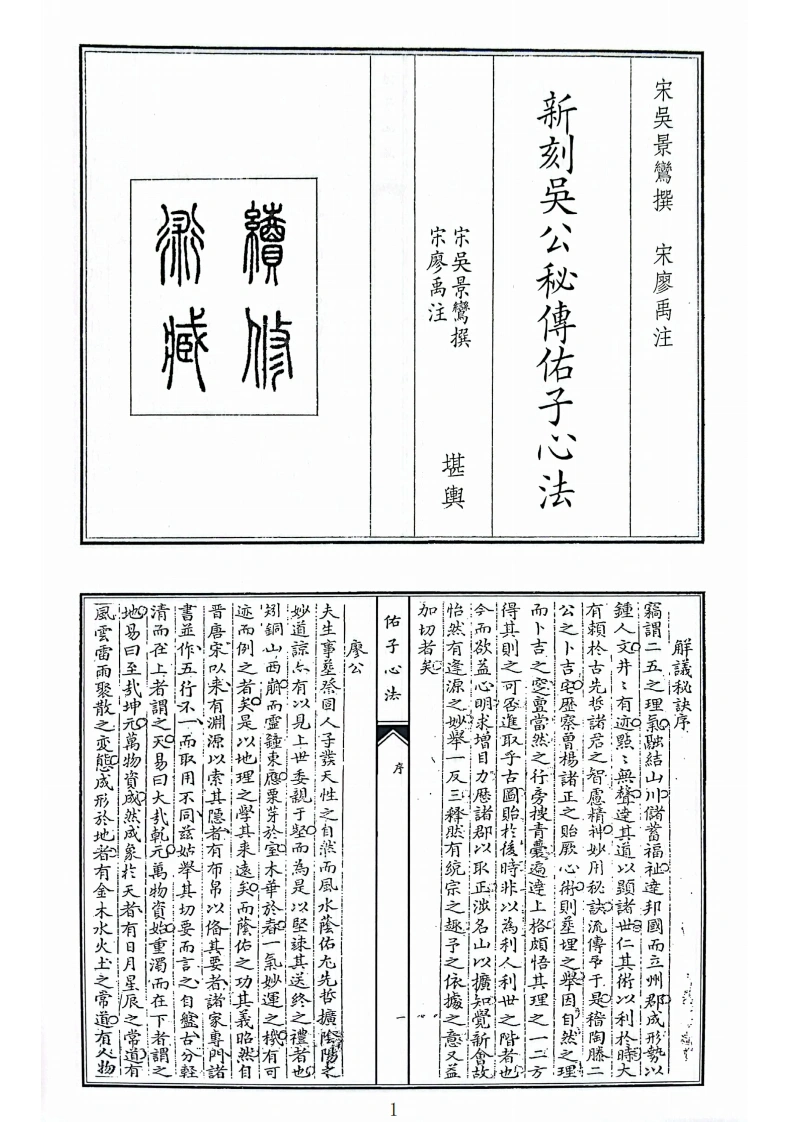 宋吳景鸞撰　宋廖禹注
新刻吳公秘傳佑子心法
宋吳景鸞撰
宋廖禹注
堪輿
續修
術藏
解議秘訣序
竊謂二五之理氣融結山川儲蓄福祉達邦國而立州郡成形勢以
鍾人文井〻有迹㸃〻無聲達其道以顯諸世仁其術以利於時大
有賴於古先哲諸君之智慮精神妙用秘訣流傳于是稽陶滕二
公之卜吉宅歷察曾楊諸正之貽厥心術則塟埋之舉因自然之理
而卜吉之靈當然之行旁搜青囊遍達上格頗悟其理之一二方
得其則之可否進取乎古圖貽於後時非以為利人利世之階者也
今而欲益心明求增目力歷諸郡以取正涉名山以擴知覺新會故
怡然有逢源之妙舉一反三釋然有統宗之趣予之依據之意又益
加切者矣
佑子心法
序
一
廖公
夫生事塟祭固人子發天性之自然而風水蔭佑尢先哲擴陰陽之
妙道諒亦有以見上世委親于壑而為是以堅誄其送終之禮者也
矧銅山西崩而靈鐘東應栗芽於室木華於春一氣妙運之機有可
迹而例之者矣是以地理之學其来遠矣而蔭佑之功其義昭然自
晉唐宋以来有淵源以索其隱者有布帛以俻其要者諸家專門諸
書並作五行不一而取用不同兹姑舉其切要而言之自盤古分輕
清而在上者謂之天易曰大㢤乾元萬物資始重濁而在下者謂之
地易曰至㢤坤元萬物資成然成象於天者有日月星辰之常道有
風雲雷雨聚散之変態成形於地者有金木水火土之常道有人物
1